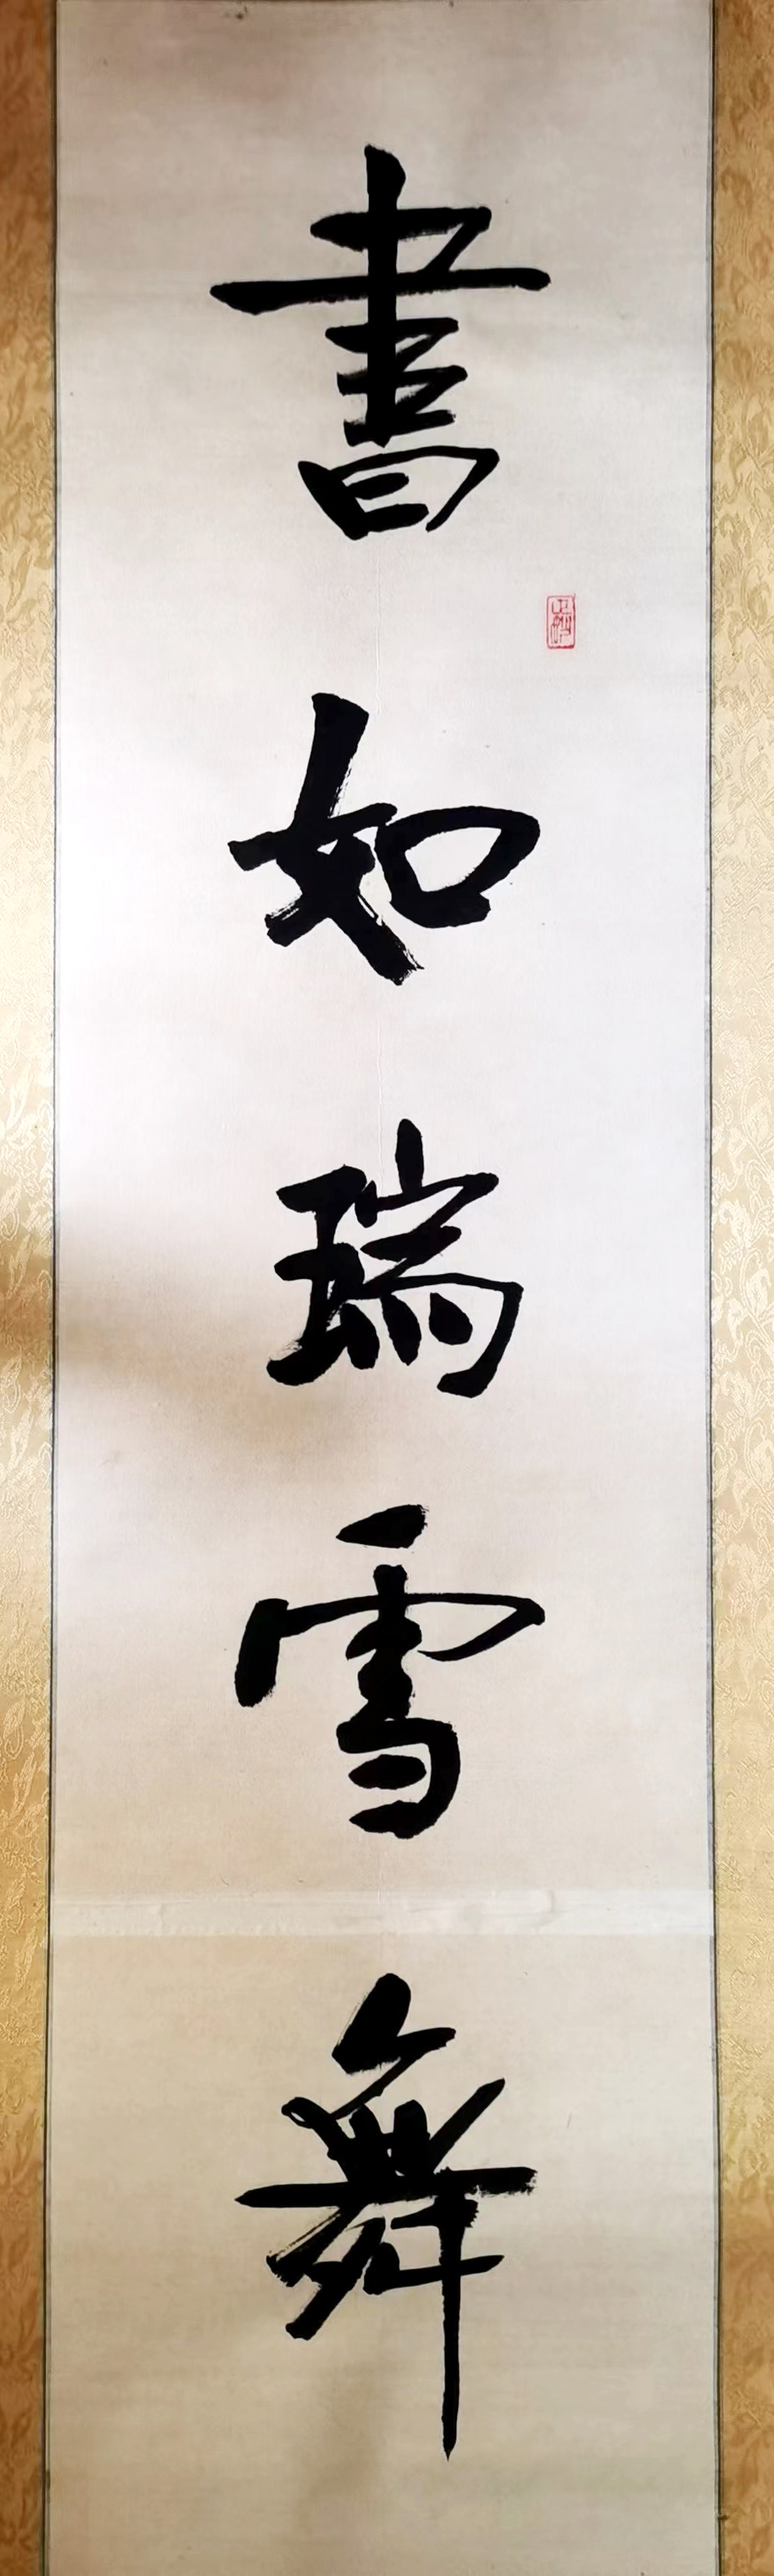 書如瑞雪舞